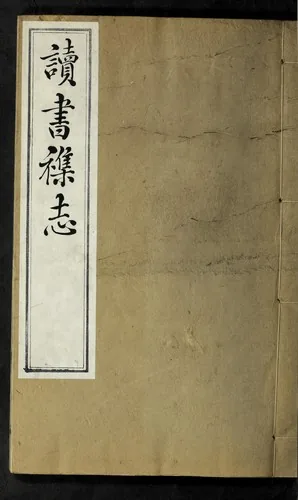 讀書襍志